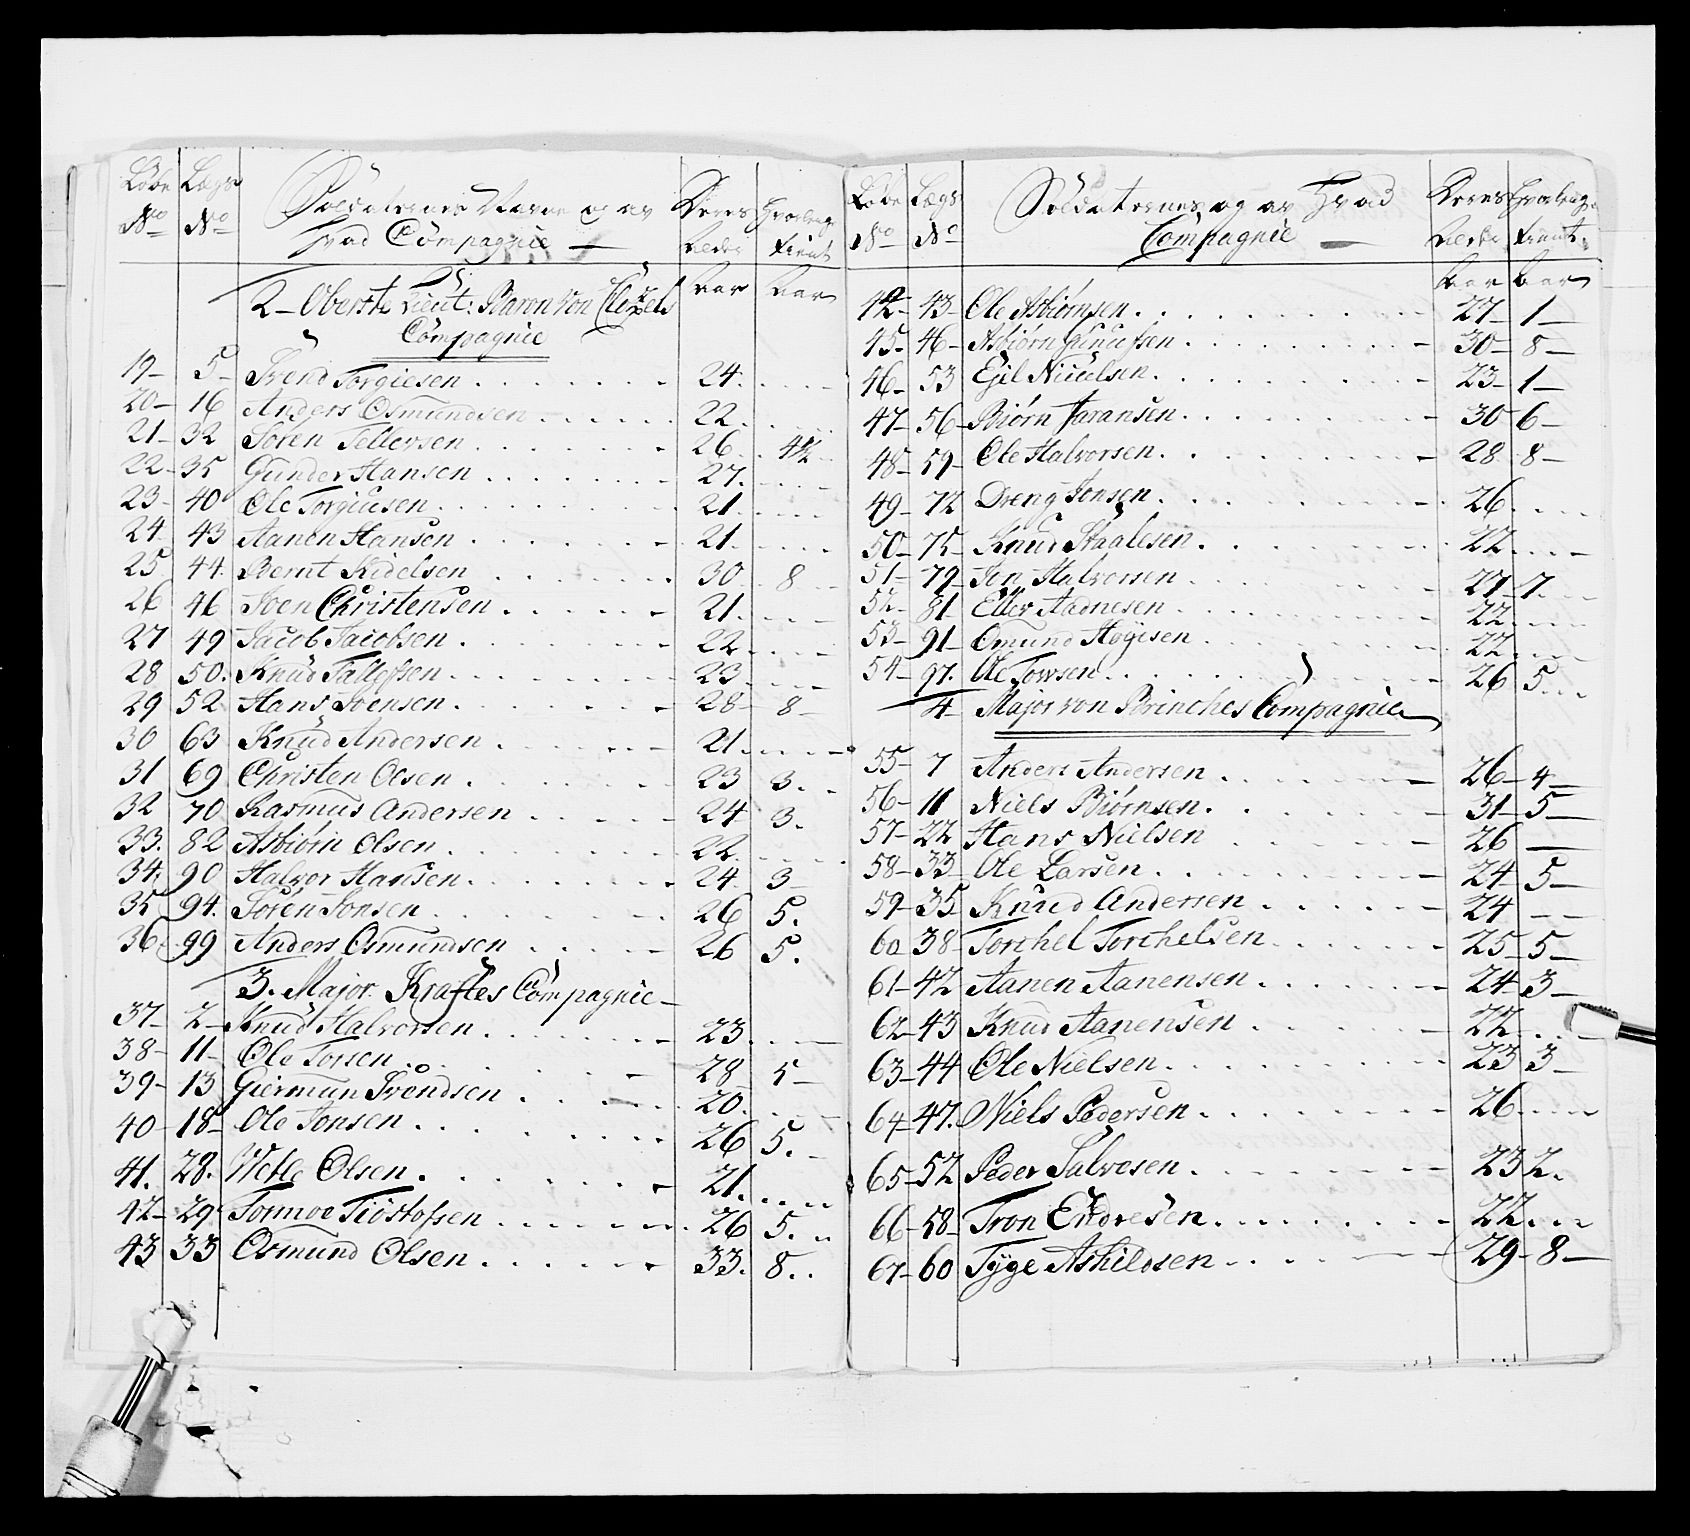 Løbe Lægs Soldaternes Navne og av Deres Hvorlenge
No No hvad Compagnie Alder tient
Aar Aar
2 Oberste Lieut: Baron von
Compagnie
19 5 Svend Torgiesen 24
20 16 Anders Osmundsen 22
21 32 Søren Tellevsen 26 4½
22 35 Gunder Hansen 27
23 40 Ole Torgiusen 21
24 43 Aanen Hansen 21
25 44 Bernt Kidelsen 30 8
26 46 Soen Christensen 21
27 49 Jacob Jacobsen 22
28 50 Knud Tallefsen 23
29 52 Hans Svensen 28 8
30 63 Knud Andersen 21
31 69 Christen Olsen 23 3
32 70 Rasmus Andersen 24 3
33 82 Asbiørn Olsen 22
34 90 Halvor Hansen 24 3
35 94 Søren Jonsen 26 5
36 99 Anders Osmundsen 26 5
3. Major Kraftes Compagnie
37 2 Knud Halvorsen 23
38 11 Ole Torsen 28 5
39 13 Giermun Svendsen 20
40 18 Ole Jonsen 26 5
41 28 Wetle Olsen 21
42 29 Tormoe Tiøstofsen 26 5
43 33 Osmund Olsen 33 8
Løbe Lægs Soldaternes og av Hvad Deres Hvorlenge
No No Compagnie Alder tient
Aar Aar
44 43 Ole Asbiørnsen 27 1
45 46 Asbiørn Gunufsen 30 8
46 53 Egil Niculsen 23 1
47 56 Biørn Taransen 30 6
48 59 Ole Halvorsen 28 8
49 72 Dreng Jonsen 26
50 75 Knud Staalesen 22
51 79 Jon Halvorsen 27 7
52 81 Ellev Aadnesen 22
53 91 Omund Høyisen 22
54 97 Ole Towsen 26 5
4 Major von Brinches Compagnie
55 7 Anders Andersen 26 4
56 11 Niels Biørnsen 31 5
57 22 Hans Nielsen 26
58 33 Ole Larsen 24 5
59 35 Knud Andersen 24
60 38 Torchel Torchelsen 25 5
61 42 Aanen Aanensen 24 3
62 43 Knud Aanensen 22
63 44 Ole Nielsen 23 3
64 47 Niels Pedersen 26
65 52 Peder Salvesen 23 2
66 58 Tron Endresen 22
67 60 Tyge Askildsen 29 8